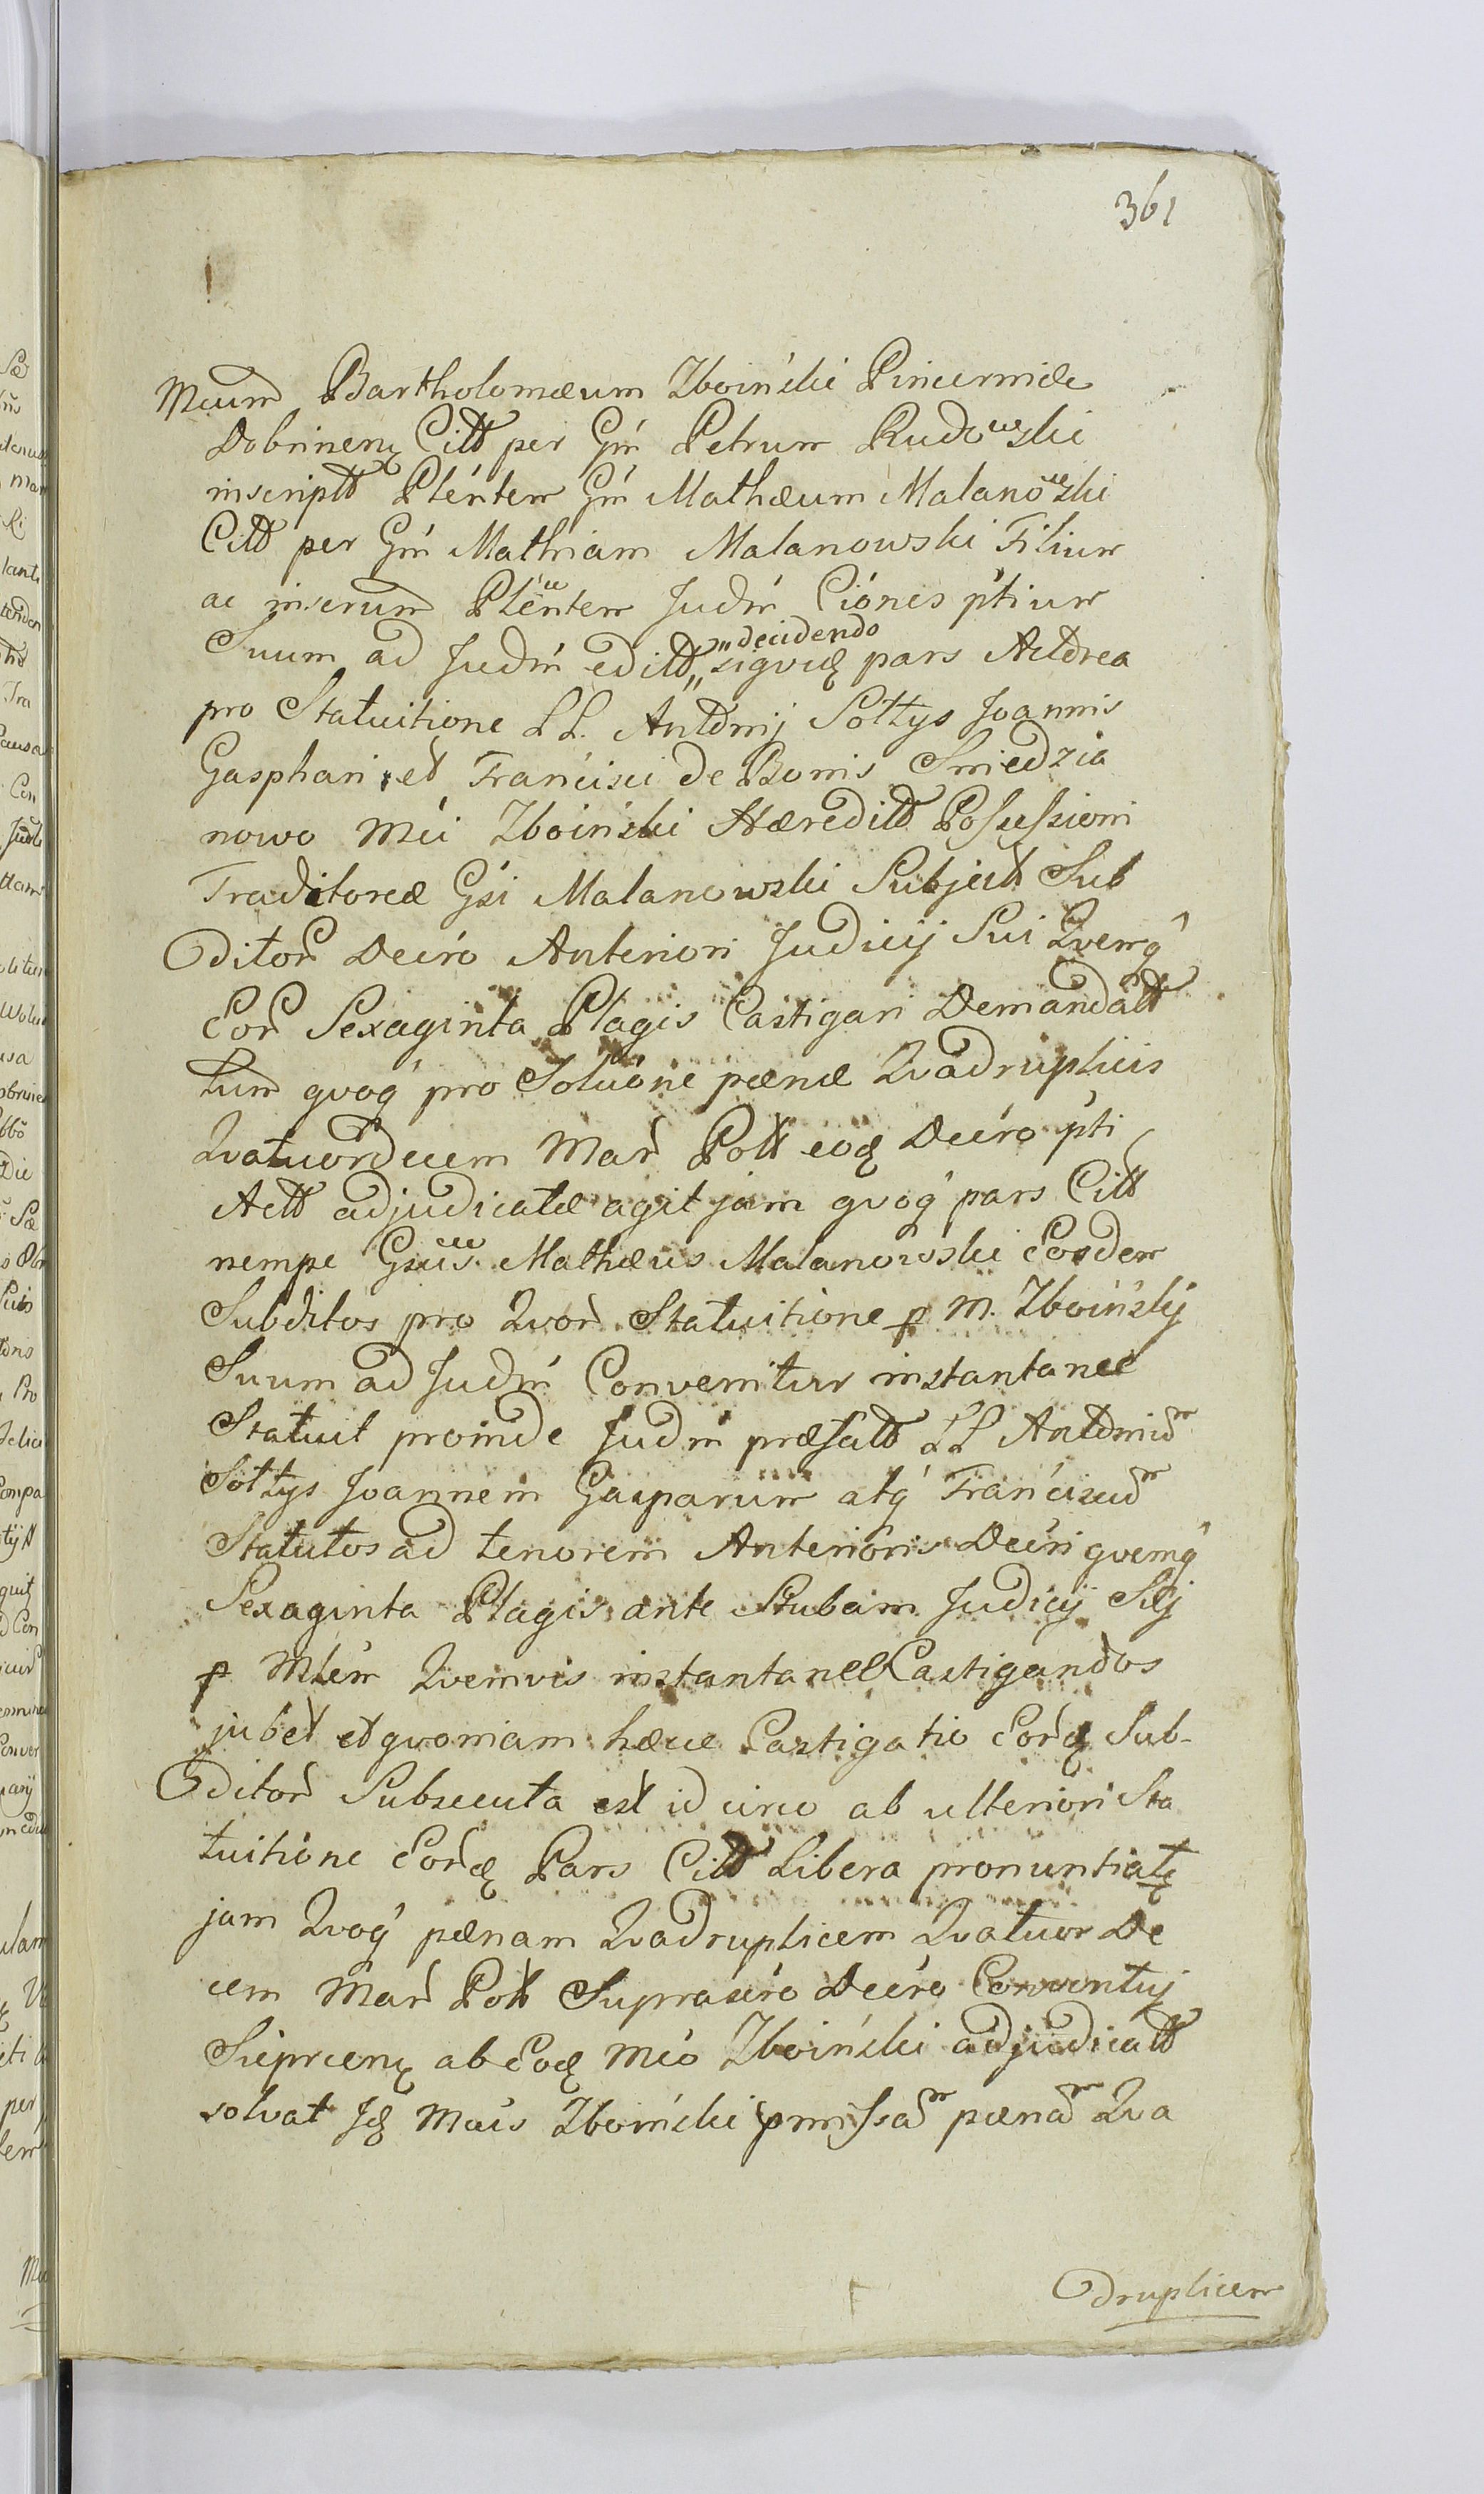 361
Mcum Bartholomæum Zboinski Pincernidæ
Dobrinenę Citt per Gm Petrum Rudowski
inscriptt Pléntem Gm Mathæum Malanowski
Citt per Gm Mathiam Malanowski Filium
ac inserum Pléntem Judm Ciónes ptium
decidendo
Suum ad Judm editt siqvidę pars Actorea
pro Statuitione LL. Antonij Sołtys Joannis
Gasphari et Francisci de Bonis Smiedzia
nowo Mci Zboinski Hæreditt Possessioni
Traditoreæ Gsi Malanowski Subject Sub
ditor Decro Anteriori Judicij Sui Qvemq
Eor Sexaginta Plagis Castigari Demandatt
tum qvoq pro Soluone pænæ Qvadruplicis
Qvatuordecem Mar Poll eodę Decro pti
Actt adjudicatæ agit jam qvoq pars Citt
nempe Gsus Mathæus Malanowski Eosdem
Subditos pro Qvor Statuitione p M. Zboinskj
Suum ad Judm Convenitur instantaneé
Statuit proinde Judm præfatt LL Antonium
Sołtys Joannem Gasparum atq Franciscum
Statutos ad tenorem Anterioris Decri qvemq
Sexaginta Plagis ante Stubam Judicij Sui
p Mlem Qvemvis instantaneé Castigandos
jubet et qvoniam hæcce Castigatio Eordę Sub-
ditor Subsecuta est id circo ab ulteriori Sta
tuitione Eordę Pars Citt Libera pronuntiatę
jam Qvoq pænam Qvadruplicem Qvatuor De
cem Mar Poll Suprascro Decro Conventuj
Sieprcenę ab Eodę Mco Zboinski adjudicatt
solvat Idę Mcus Zboinski pmissam pænam Qva
druplicem